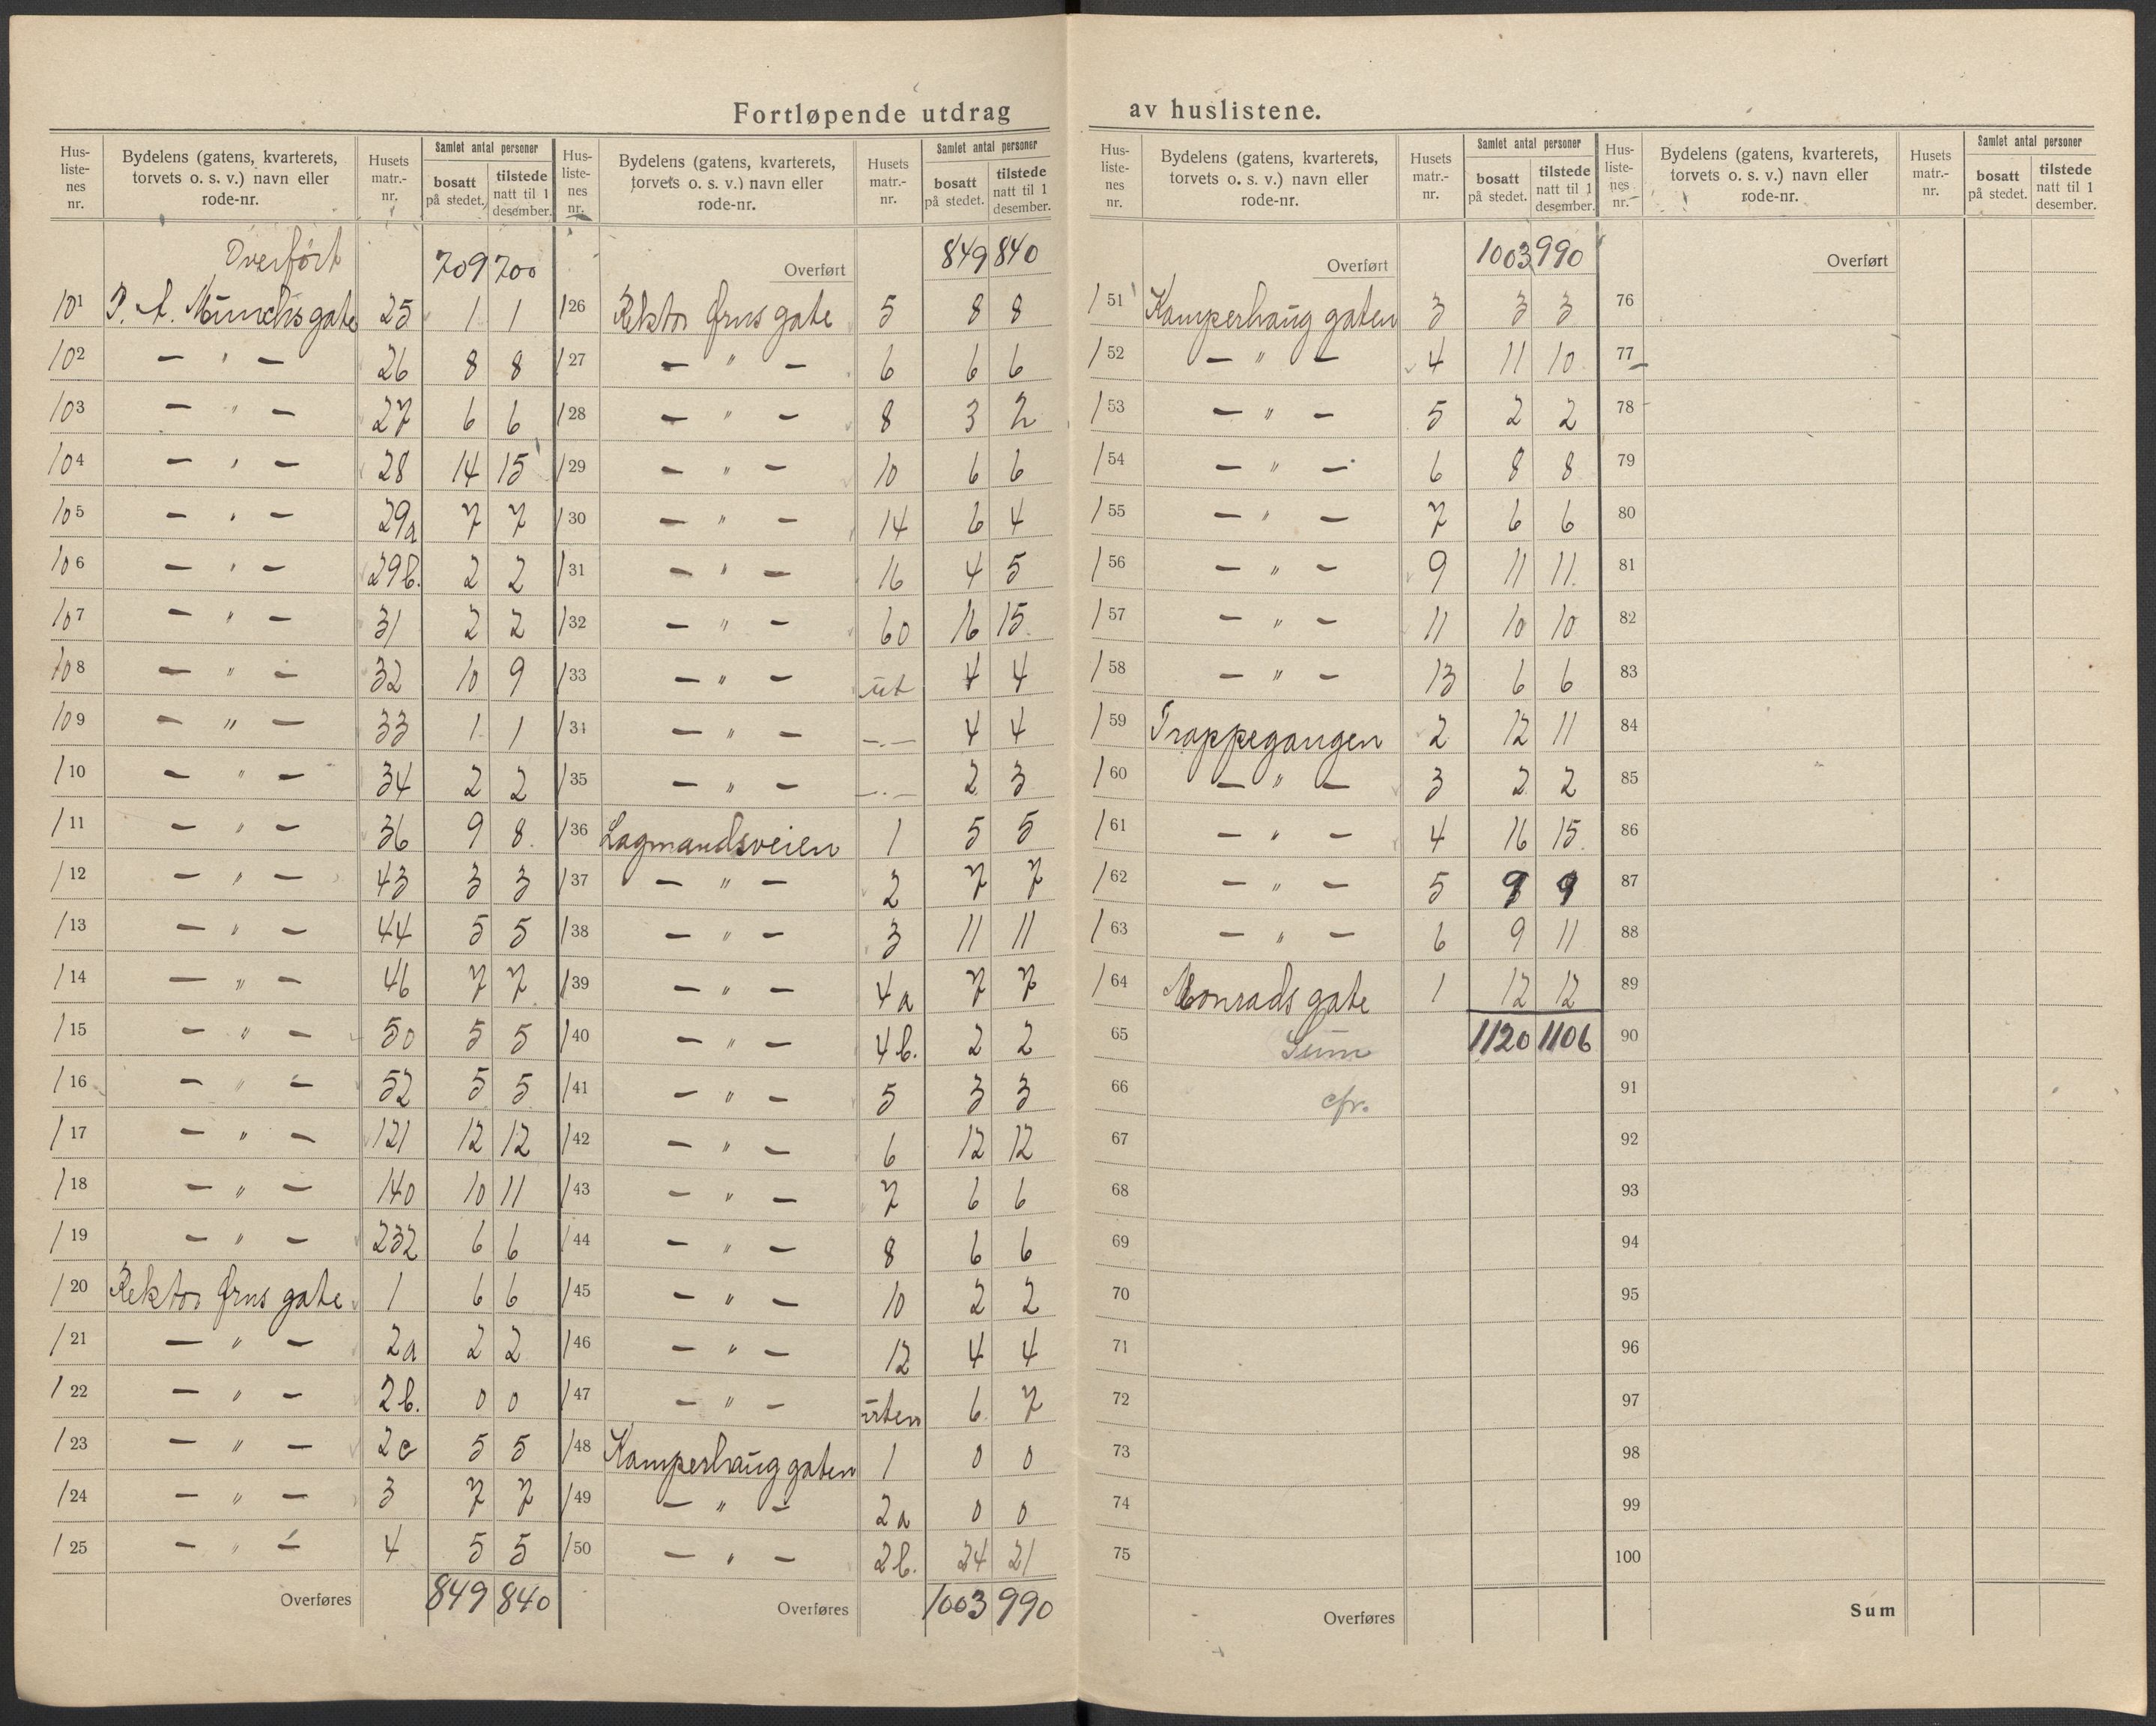 Fortløpende utdrag av huslistene.
Hus-listenes nr. | Bydelens (gatens, kvarterets, torvets o. s. v.) navn eller rode-nr. | Husets matr.-nr. | Samlet antal personer | bosatt på stedet. | tilstede natt til 1 desember.
Overført 709 700
101 P. A. Munchs gate 25 1 1
102 — " — 26 8 8
103 — " — 27 6 6
104 — " — 28 14 15
105 — " — 29a 7 7
106 — " — 29b. 2 2
107 — " — 31 2 2
108 — " — 32 10 9
109 — " — 33 1 1
110 — " — 34 2 2
111 — " — 36 9 8
112 — " — 43 3 3
113 — " — 44 5 5
114 — " — 46 7 7
115 — " — 50 5 5
116 — " — 52 5 5
117 — " — 121 12 12
118 — " — 140 10 11
119 — " — 232 6 6
120 Rektor Ørns gate 1 6 6
121 — " — 2a 2 2
122 — " — 2b. 0 0
123 — " — 2c 5 5
124 — " — 3 7 7
125 — " — 4 5 5
Overføres 849 840
Hus-listenes nr. | Bydelens (gatens, kvarterets, torvets o. s. v.) navn eller rode-nr. | Husets matr.-nr. | Samlet antal personer | bosatt på stedet. | tilstede natt til 1 desember.
Overført 849 840
126 Rektor Ørns gate 5 8 8
127 — " — 6 6 6
128 — " — 8 3 2
129 — " — 10 6 6
130 — " — 14 6 4
131 — " — 16 4 5
132 — " — 60 16 15
133 — " — ut 4 4
134 — " — —.— 4 4
135 — " — —.— 2 3
136 Lagmandsveien 1 5 5
137 — " — 2 7 7
138 — " — 3 11 11
139 — " — 4a 7 7
140 — " — 4b. 2 2
141 — " — 5 3 3
142 — " — 6 12 12
143 — " — 7 6 6
144 — " — 8 6 6
145 — " — 10 2 2
146 — " — 12 4 4
147 — " — uten 6 7
148 Kamperhaug gaten 1 0 0
149 — " — 2a 0 0
150 — " — 2b. 24 21
Overføres 1003 990
Hus-listenes nr. | Bydelens (gatens, kvarterets, torvets o. s. v.) navn eller rode-nr. | Husets matr.-nr. | Samlet antal personer | bosatt på stedet. | tilstede natt til 1 desember.
Overført 1003 990
151 Kamperhaug gaten 3 3 3
152 — " — 4 11 10
153 — " — 5 2 2
154 — " — 6 8 8
155 — " — 7 6 6
156 — " — 9 11 11.
157 — " — 11 10 10
158 — " — 13 6 6
159 Trappegangen 2 12 11
160 — " — 3 2 2
161 — " — 4 16 15
162 — " — 5 9 9
163 — " — 6 9 11
164 Conrads gate 1 12 12
65 Sum 1120 1106
66 cfr.
67
68
69
70
71
72
73
74
75
Overføres
Hus-listenes nr. | Bydelens (gatens, kvarterets, torvets o. s. v.) navn eller rode-nr. | Husets matr.-nr. | Samlet antal personer | bosatt på stedet. | tilstede natt til 1 desember.
Overført
76
77
78
79
80
81
82
83
84
85
86
87
88
89
90
91
92
93
94
95
96
97
98
99
100
Sum